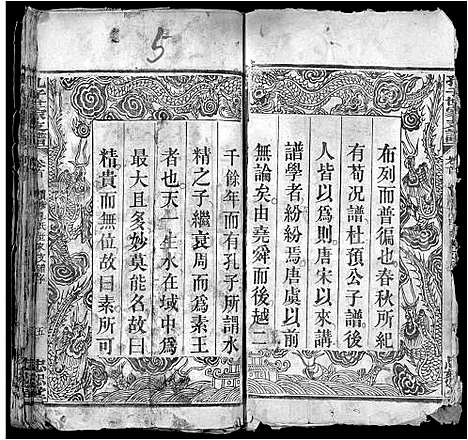 布列而普徧也春秋所紀
有荀况譜杜預公子譜後
人皆以爲則唐宋以來講
譜學者紛紛焉唐虞以前
無論矣由堯舜而後越二
千餘年而有孔子所謂水
精之子繼衰周而爲素王
者也天一生水在域中爲
最大且多妙莫能名故曰
精貴而無位故曰素所可
5
五